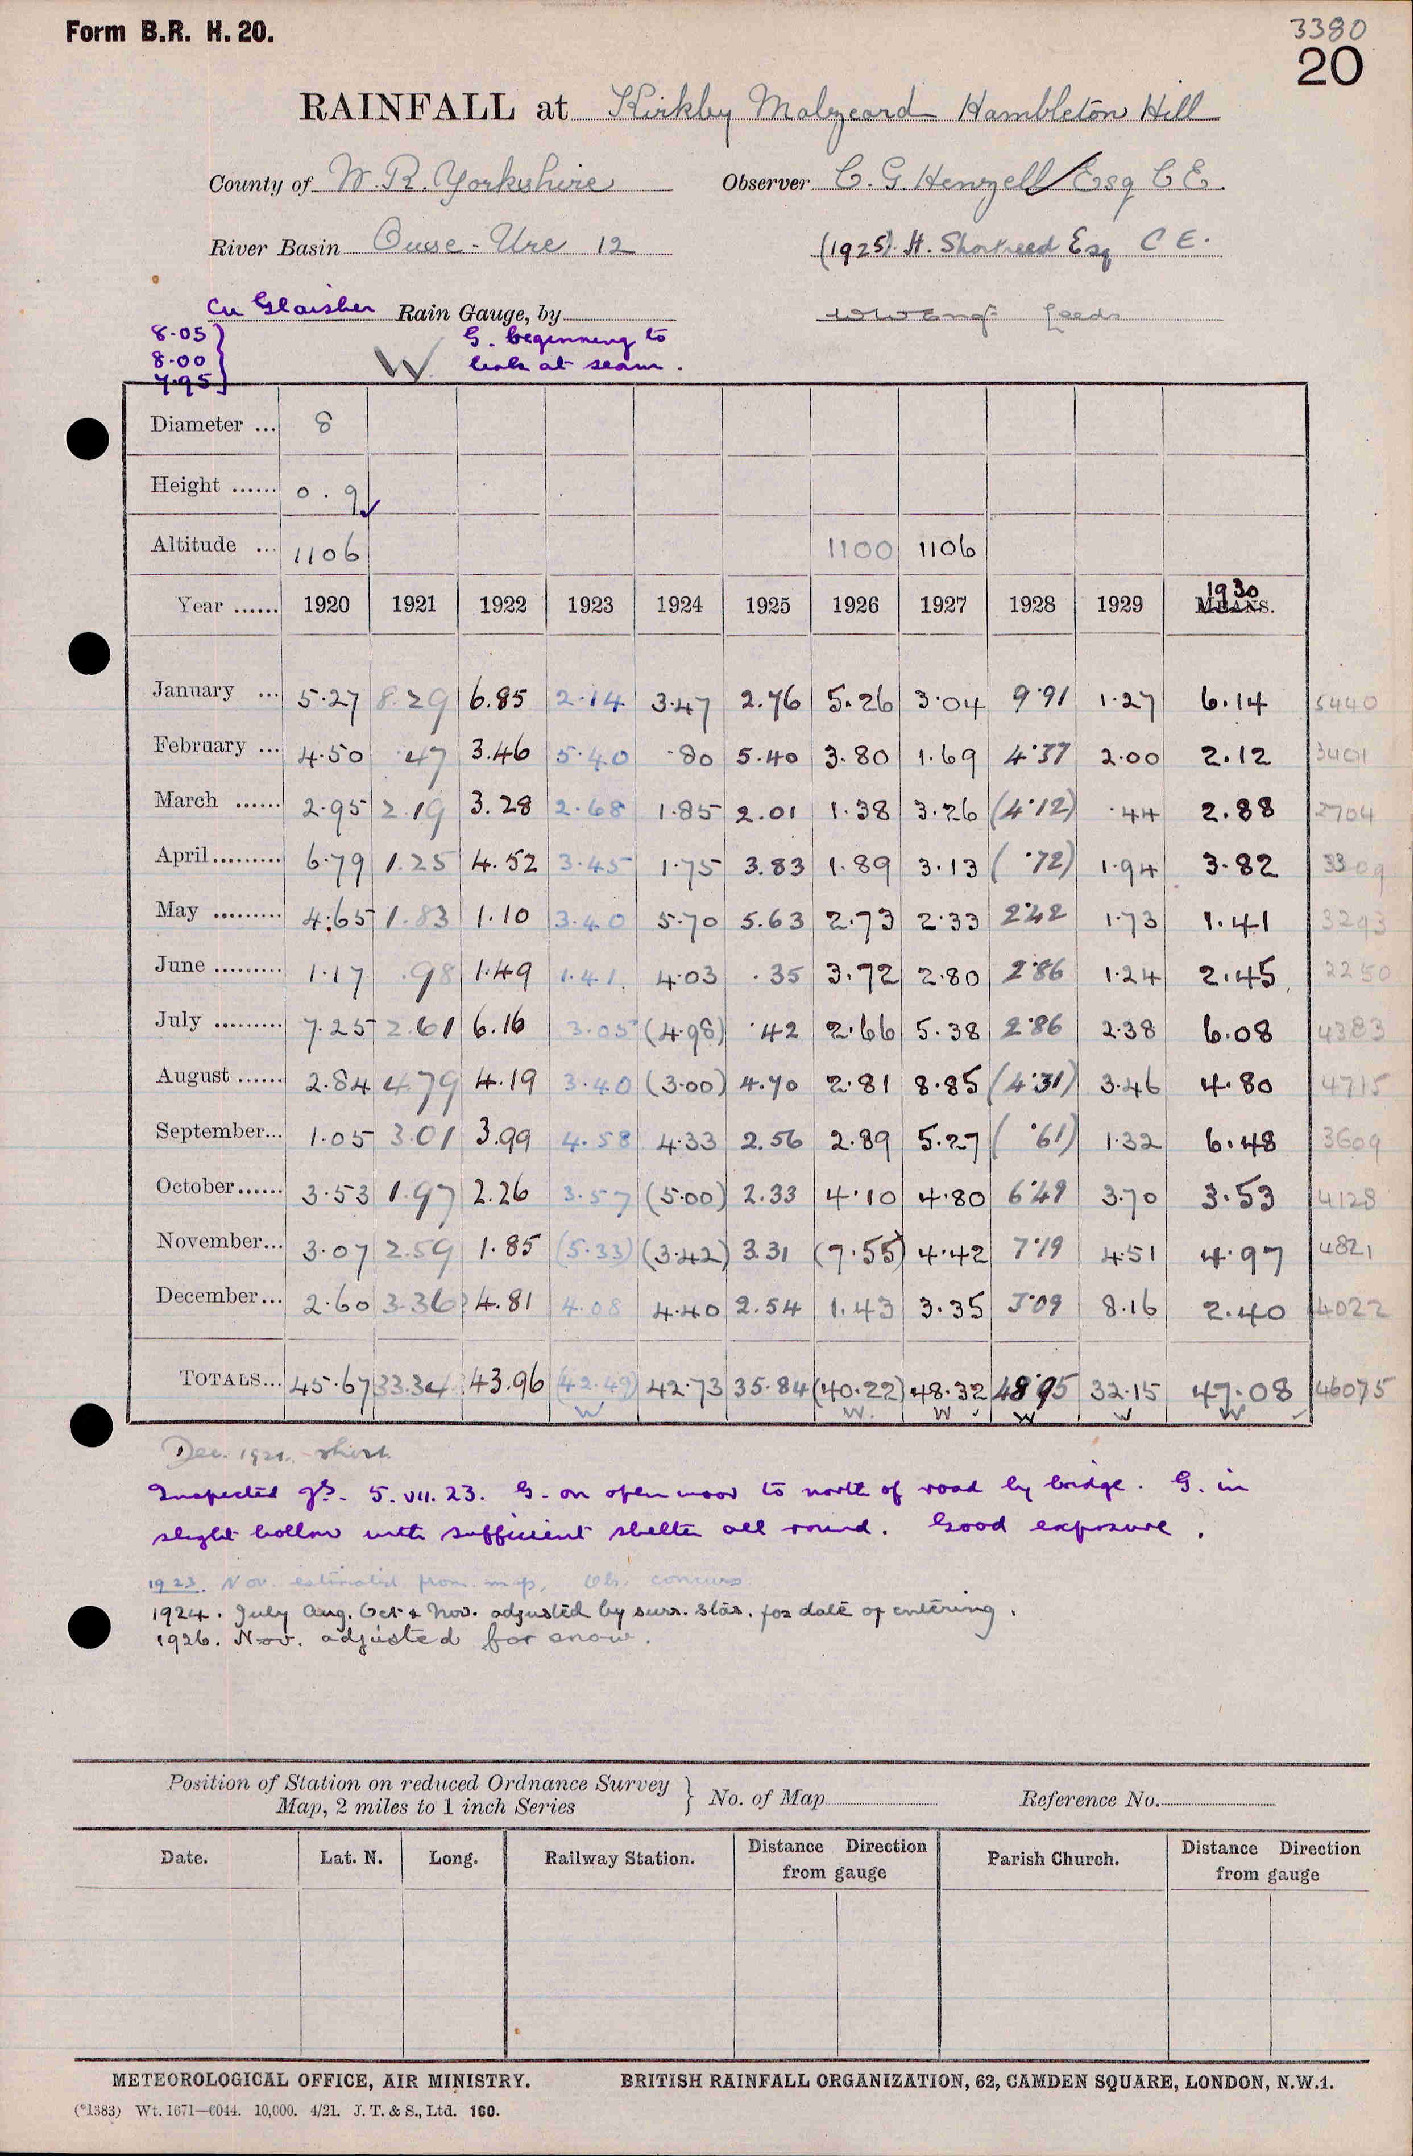 Form B.R. H. 20.
3380
20
RAINFALL at Kirkby Malzeard Hambleton Hill
County of W. R. Yorkshire Observer C. G. Henzell Esq C E.
River Basin Ouse - Ure 12 (1925) H. Shortreed Esq C E.
Cu Glaisher Rain Gauge, by Leeds
8.05
8.00
7.95
W G. beginning to
leak at seam.
Diameter ... 8
Height ...... 0 . 9
Altitude ... 1106 1100 1106
Year ...... 1920 1921 1922 1923 1924 1925 1926 1927 1928 1929 1930 MEANS.
January ... 5.27 8.29 6.85 2.14 3.47 2.76 5.26 3.04 9.91 1.27 6.14 5440
February ... 4.50 .47 3.46 5.40 .80 5.40 3.80 1.69 4.37 2.00 2.12 3401
March ...... 2.95 2.19 3.28 2.68 1.85 2.01 1.38 3.26 (4.12) .44 2.88 2704
April......... 6.79 1.25 4.52 3.45 1.75 3.83 1.89 3.13 (.72) 1.94 3.82 3309
May ......... 4.65 1.83 1.10 3.40 5.70 5.63 2.73 2.33 2.42 1.73 1.41 3293
June ......... 1.17 .98 1.49 1.41 4.03 .35 3.72 2.80 2.86 1.24 2.45 2250
July ......... 7.25 2.61 6.16 3.05 (4.98) .42 2.66 5.38 2.86 2.38 6.08 4383
August ...... 2.84 4.79 4.19 3.40 (3.00) 4.70 2.81 8.85 (4.31) 3.46 4.80 4715
September... 1.05 3.01 3.99 4.58 4.33 2.56 2.89 5.27 (.61) 1.32 6.48 3609
October...... 3.53 1.97 2.26 3.57 (5.00) 2.33 4.10 4.80 6.49 3.70 3.53 4128
November... 3.07 2.59 1.85 (5.33) (3.42) 3.31 (7.55) 4.42 7.19 4.51 4.97 4821
December... 2.60 3.36? 4.81 4.08 4.40 2.54 1.43 3.35 3.09 8.16 2.40 4022
TOTALS... 45.67 33.34 43.96 (42.49) 42.73 35.84 (40.22) 48.32 48.95 32.15 47.08 46075
W W. W W W W
Dec. 1921. short.
Inspected 5.VII.23. G. on open moor to north of road by bridge. G. in
slight hollow with sufficient shelter all round. Good exposure.
1923. Nov. estimated from map, Obs. concurs.
1924. July Aug. Oct & Nov. adjusted by surr. stas. for date of entering.
1926. Nov. adjusted for snow.
Position of Station on reduced Ordnance Survey
Map, 2 miles to 1 inch Series } No. of Map Reference No.
Date. Lat. N. Long. Railway Station. Distance Direction from gauge Parish Church. Distance Direction from gauge
METEOROLOGICAL OFFICE, AIR MINISTRY. BRITISH RAINFALL ORGANIZATION, 62, CAMDEN SQUARE, LONDON, N.W.1.
(*1383) Wt. 1671—6044. 10,000. 4/21. J. T. & S., Ltd. 160.